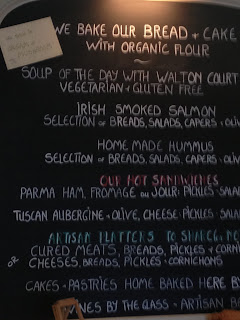 WE BAKE OUR BREAD + CAKE
WITH ORGANIC FLOUR
SOUP OF THE DAY WITH WALTON COURT
VEGETARIAN + GLUTEN FREE
IRISH SMOKED SALMON
SELECTION OF BREADS, SALADS, CAPERS + OLIV
HOME MADE HUMMUS
SELECTION OF BREADS, SALADS, CAPERS + OLIV
OUR HOT SANDWICHES
PARMA HAM, FROMAGE DU JOUR, PICKLES SALA
TUSCAN AUBERGINE + OLIVE, CHEESE PICKLES SALA
ARTISAN PLATTERS TO SHARE
CURED MEATS, BREADS, PICKLES + CORNI
OR CHEESES, BREADS, PICKLES + CORNICHONS
CAKES + PASTRIES HOME BAKED HERE BY
WINES BY THE GLASS + ARTISAN BE